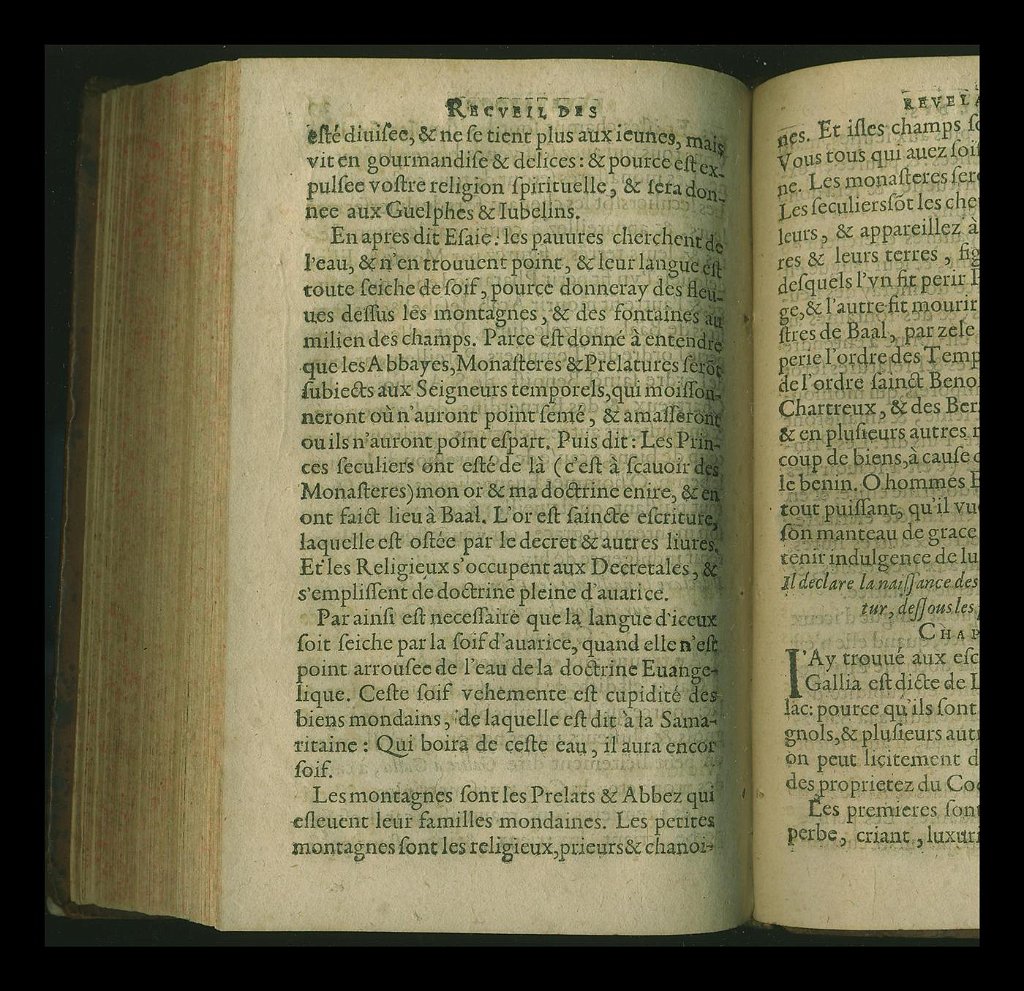 RECVEIL DES
esté diuisee, & ne se tient plus aux ieunes, mais
vit en gourmandise & delices: & pource est ex-
pulsee vostre religion spirituelle, & sera don-
nee aux Guelphes & Iubelins.
En apres dit Esaie: les pauures cherchent de
l'eau, & n'en trouuent point, & leur langue est
toute seiche de soif, pource donneray des fleu-
ues dessus les montagnes, & des fontaines au
milien des champs. Parce est donné à entendre
que les Abbayes, Monasteres & Prelatures serõt
subiects aux Seigneurs temporels, qui moisson-
neront où n'auront point semé, & amasseront
ou ils n'auront point espart. Puis dit: Les Prin-
ces seculiers ont esté de là (c'est à scauoir des
Monasteres) mon or & ma doctrine enire, & en
ont faict lieu à Baal. L'or est saincte escriture,
laquelle est ostée par le decret & autres liures.
Et les Religieux s'occupent aux Decretales, &
s'emplissent de doctrine pleine d'auarice.
Par ainsi est necessaire que la langue d'iceux
soit seiche par la soif d'auarice, quand elle n'est
point arrousee de l'eau de la doctrine Euange-
lique. Ceste soif vehemente est cupidité des
biens mondains, de laquelle est dit à la Sama-
ritaine: Qui boira de ceste eau, il aura encor
soif.
Les montagnes sont les Prelats & Abbez qui
esleuent leur familles mondaines. Les petites
montagnes sont les religieux, prieurs & chanoi-
REVELA
nes. Et isles champs so
Vous tous qui auez soif
ne. Les monasteres ser
Les seculiers sõt les che
leurs, & appareillez à
res & leurs terres, fig
desquels l'vn fit perir
ge, & l'autre fit mourir
stres de Baal, par zele
perie l'ordre des Temp
de l'ordre sainct Beno
Chartreux, & des Ber
& en plusieurs autres
coup de biens, à cause
le benin. O hommes
tout puissant, qu'il vu
son manteau de grace
tenir indulgence de lu
Il declare la naissance des
tur, dessous les
CHAP
I'Ay trouué aux esc
Gallia est dicte de
lac: pource qu'ils sont
gnols, & plusieurs aut
on peut licitement d
des proprietez du Co
Les premieres son
perbe, criant, luxuri